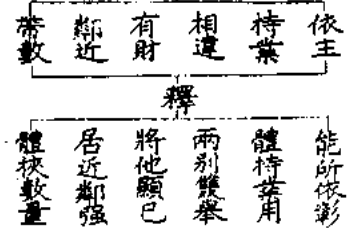 依主
持業
相違
有財
鄰近
帶數
釋
能所依彰
體持業用
兩別雙舉
將他顯已
居近鄰强
體挾數量